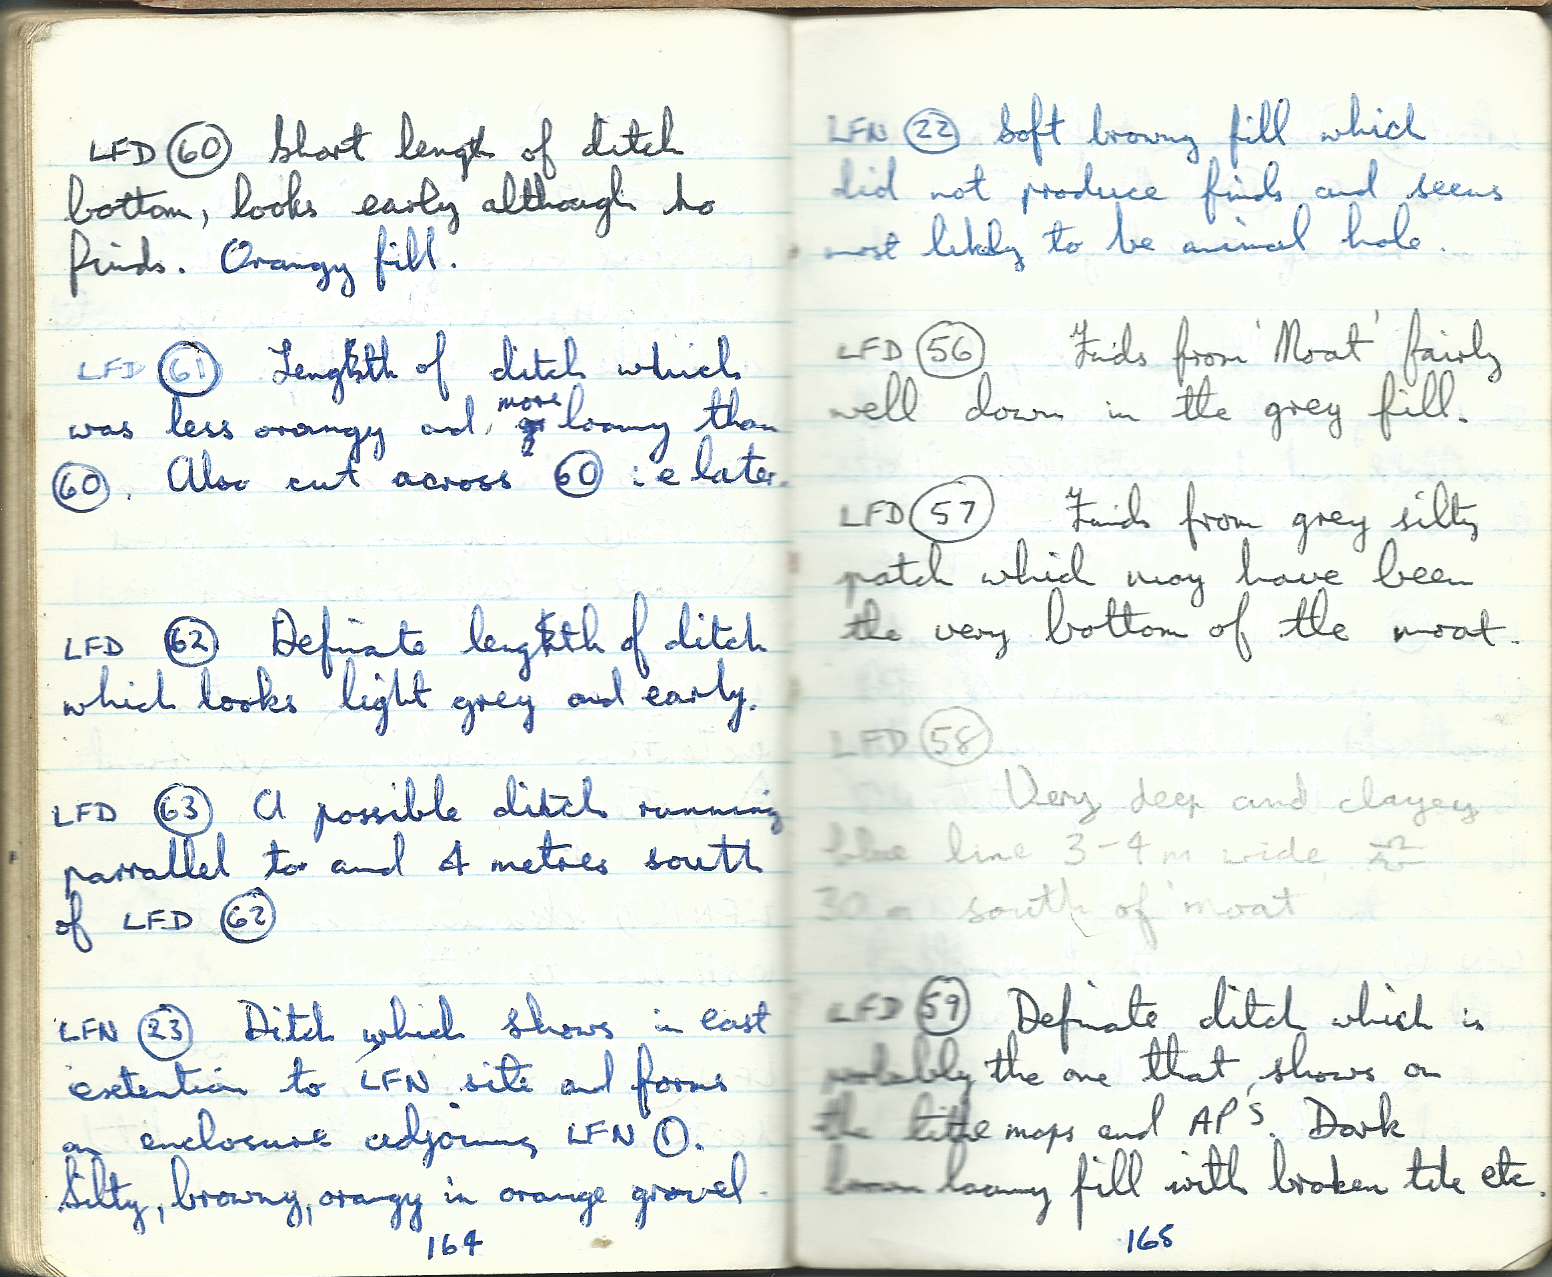 LFD 60 Short length of ditch
bottom, looks early although no
finds. Orangy fill.
LFD 61 Length of ditch which
was less orangy and more loamy than
60. Also cut across 60 i.e later.
LFD 62 Definate length of ditch
which looks light grey and early.
LFD 63 A possible ditch running
parrallel to and 4 metres south
of LFD 62
LFN 23 Ditch which shows in east
extention to LFN site and forms
an enclosure adjoining LFN 1.
Silty, browny, orangy in orange gravel.
164
LFN 22 Soft browny fill which
did not produce finds and seems
most likely to be animal hole.
LFD 56 Finds from 'Moat' fairly
well down in the grey fill.
LFD 57 Finds from grey silty
patch which may have been
the very bottom of the moat.
LFD 58
Very deep and clayey
blue line 3-4 m wide
30 m south of moat
LFD 59 Definate ditch which is
probably the one that shows on
the tithe maps and AP's. Dark
brown loamy fill with broken tile etc.
165